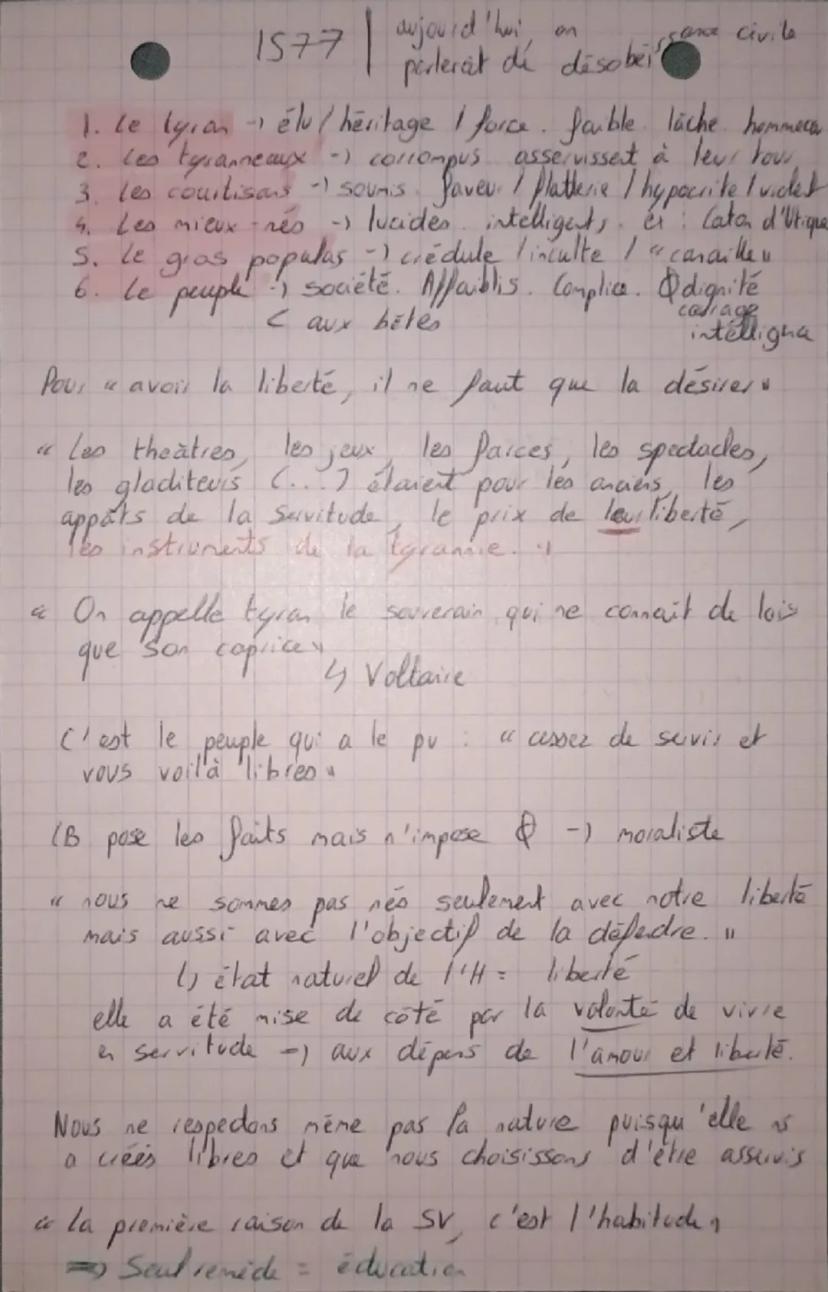 1577 | aujourd'hui, on
parlerait de désobéissance civile
1. Le tyran -> élu / héritage / force. faible. lâche. hommeau
2. Les tyranneaux -> corrompus asservissent à leur tour
3. Les courtisans -> soumis. faveur / flatterie / hypocrite /
4. Les mieux-nés -> lucides. intelligents. ex : Caton d'Utique
5. Le gros populas -> crédule / inculte / « canaille »
6. Le peuple -> société. Affaiblis. Complice. Ø dignité
courage
< aux bêtes
intelligna
Pour « avoir la liberté, il ne faut que la désirer »
« Les theâtres, les jeux, les farces, les spectacles,
les gladiteurs (...) étaient pour les anciens, les
appâts de la servitude, le prix de leur liberté,
les instruments de la tyrannie. »
« On appelle tyran le souverain qui ne connait de lois
que son caprice »
↳ Voltaire
C'est le peuple qui a le pv : « cessez de servir et
vous voilà libres »
LB pose les faits mais n'impose Ø -> moraliste
« nous ne sommes pas nés seulement avec notre liberté
mais aussi avec l'objectif de la défendre. »
↳ état naturel de l'H = liberté
elle a été mise de côté par la volonté de vivre
en servitude -> aux dépens de l'amour et liberté.
Nous ne respectons même pas la nature puisqu'elle ns
a créés libres et que nous choisissons d'être asservis
« la première raison de la SV, c'est l'habitude »
=> Seul remède = éducation